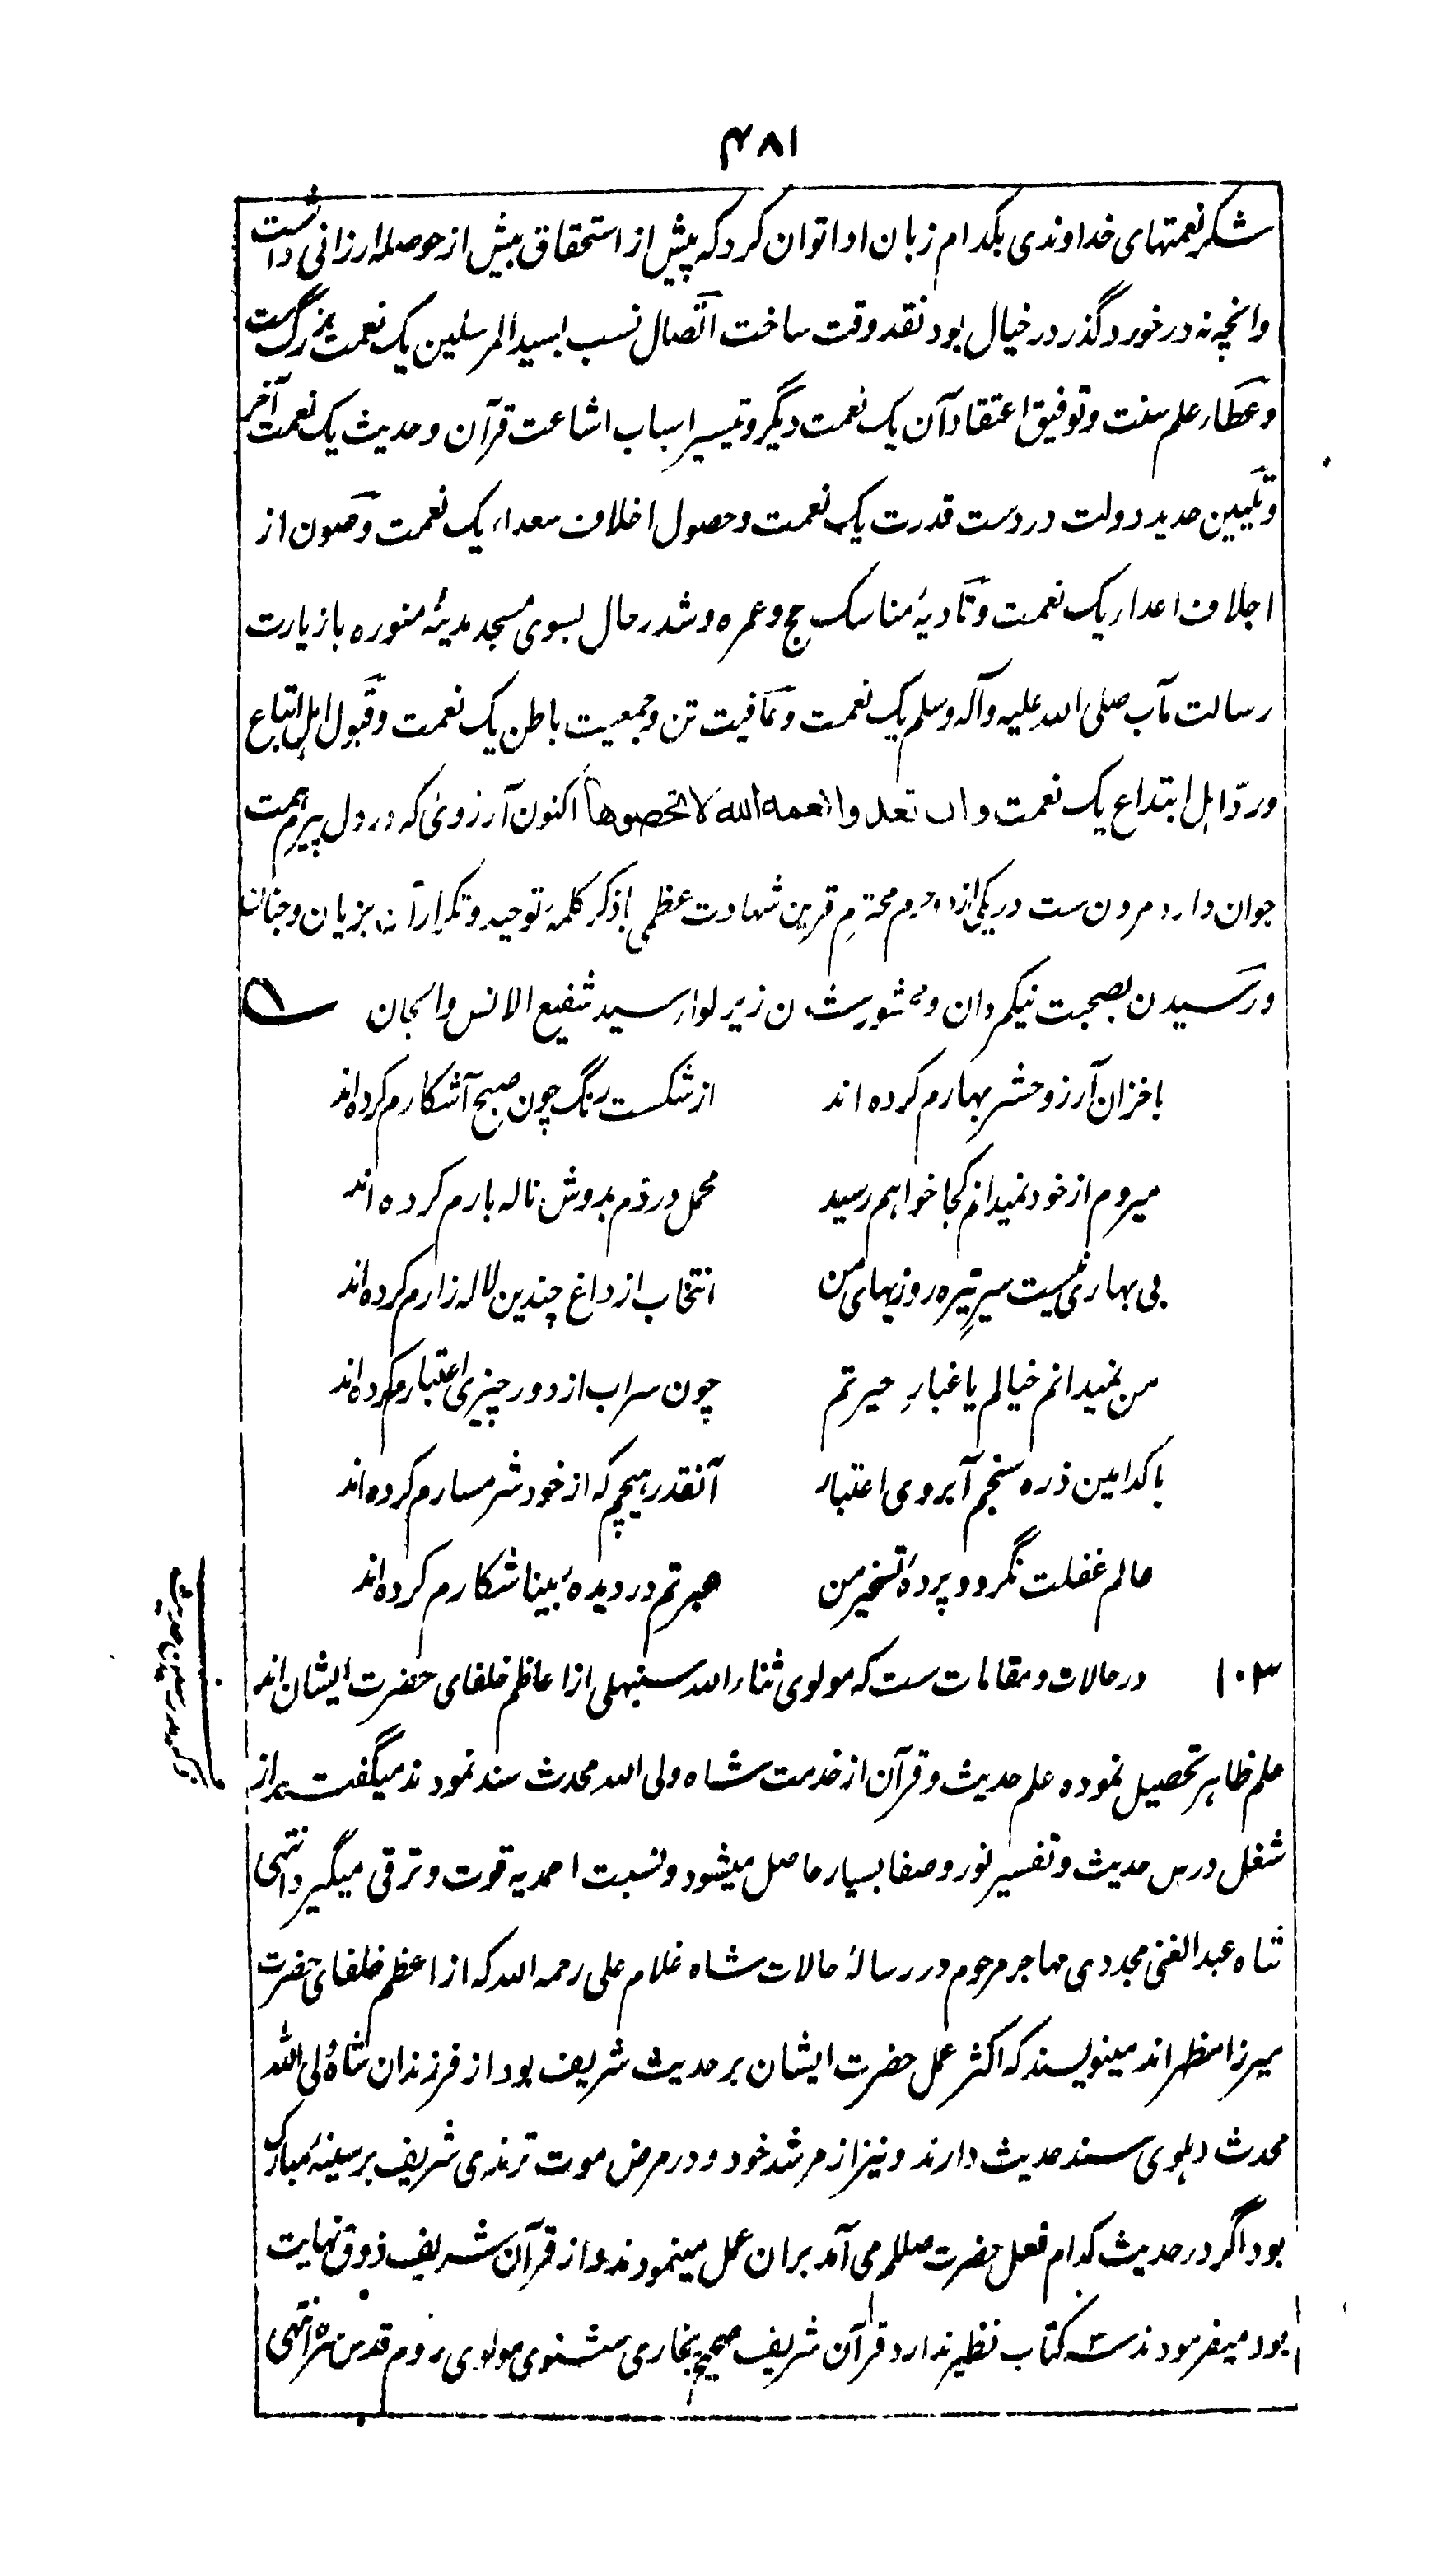 ۴۸۱
شکر نعمتهای خداوندی بکدام زبان ادا توان کرد که پیش از استحقاق بیش از حوصله ارزانی داشت
وانچه نه در خورد گذر در خیال بود نقد وقت ساخت اتّصال نسب بسید المرسلین یک نعمت بزرگ ست
و عطاء علم سنت و توفیق اعتقاد آن یک نعمت دیگر و تیسیر اسباب اشاعت قرآن و حدیث یک نعمت آخر
و تلیین حدید دولت در دست قدرت یک نعمت و حصول اخلاف سعداء یک نعمت و صون از
اجلاف اعداء یک نعمت و تادیهٔ مناسک حج و عمره و شد رحال بسوی مسجد مدینهٔ منوره با زیارت
رسالت مآب صلی الله علیه وآله وسلم یک نعمت و عافیت تن و جمعیت باطن یک نعمت و قبول اہل اتباع
و ردّ اہل ابتداع یک نعمت وان تعدوا نعمه الله لا تحصوها اکنون آرزوئ که در دل پیرم ہمت
جوان دارد مردن ست در یکی از دو حرم محترم قرین شہادت عظمی باذکر کلمهٔ توحید و تکرار آن بزبان و جنان
و رسیدن بصحبت نیکمردان و محشور شدن زیر لواء سید شفیع الانس والجان
با خزان آرزو حشر بهارم کرده اند از شکست رنگ چون صبح آشکارم کرده اند
میروم از خود نمیدانم کجا خواہم رسید محمل دردم بدوش ناله بارم کرده اند
بی بہاری نیست سیر تیره روزیہای من انتخاب از داغ چندین لاله زارم کرده اند
من نمیدانم خیالم یا غبارِ حیرتم چون سراب از دور چیزی اعتبارم کرده اند
با کدامین ذره سنجم آبروی اعتبار آنقدر ہیچم که از خود شرمسارم کرده اند
عالم غفلت نگردد پردهٔ تسخیر من عبرتم در دیدهٔ بینا شکارم کرده اند
۱۰۳ در حالات و مقامات ست که مولوی ثناء الله سنبهلی از اعاظم خلفای حضرت ایشان اند
علم ظاہر تحصیل نموده علم حدیث و قرآن از خدمت شاه ولی الله محدث سند نمودند میگفت از
شغل درس حدیث و تفسیر نور و صفا بسیار حاصل میشود و نسبت احمدیه قوت و ترقی میگیرد انتہی
شاه عبد الغنی مجددی مہاجر مرحوم در رسالهٔ حالات شاه غلام علی رحمه الله که از اعظم خلفای حضرت
میرزا مظہر اند مینویسند که اکثر عمل حضرت ایشان بر حدیث شریف بود از فرزندان شاه ولی الله
محدث دہلوی سند حدیث دارند و نیز از مرشد خود و در مرض موت ترمذی شریف بر سینهٔ مبارک
بود اگر در حدیث کدام فعل حضرت صللم می آمد بران عمل مینمودند و از قرآن شریف ذوق نہایت
بود میفرمودند سه کتاب نظیر ندارد قرآن شریف صحیح بخاری مثنوی مولوی روم قدس سره انتہی